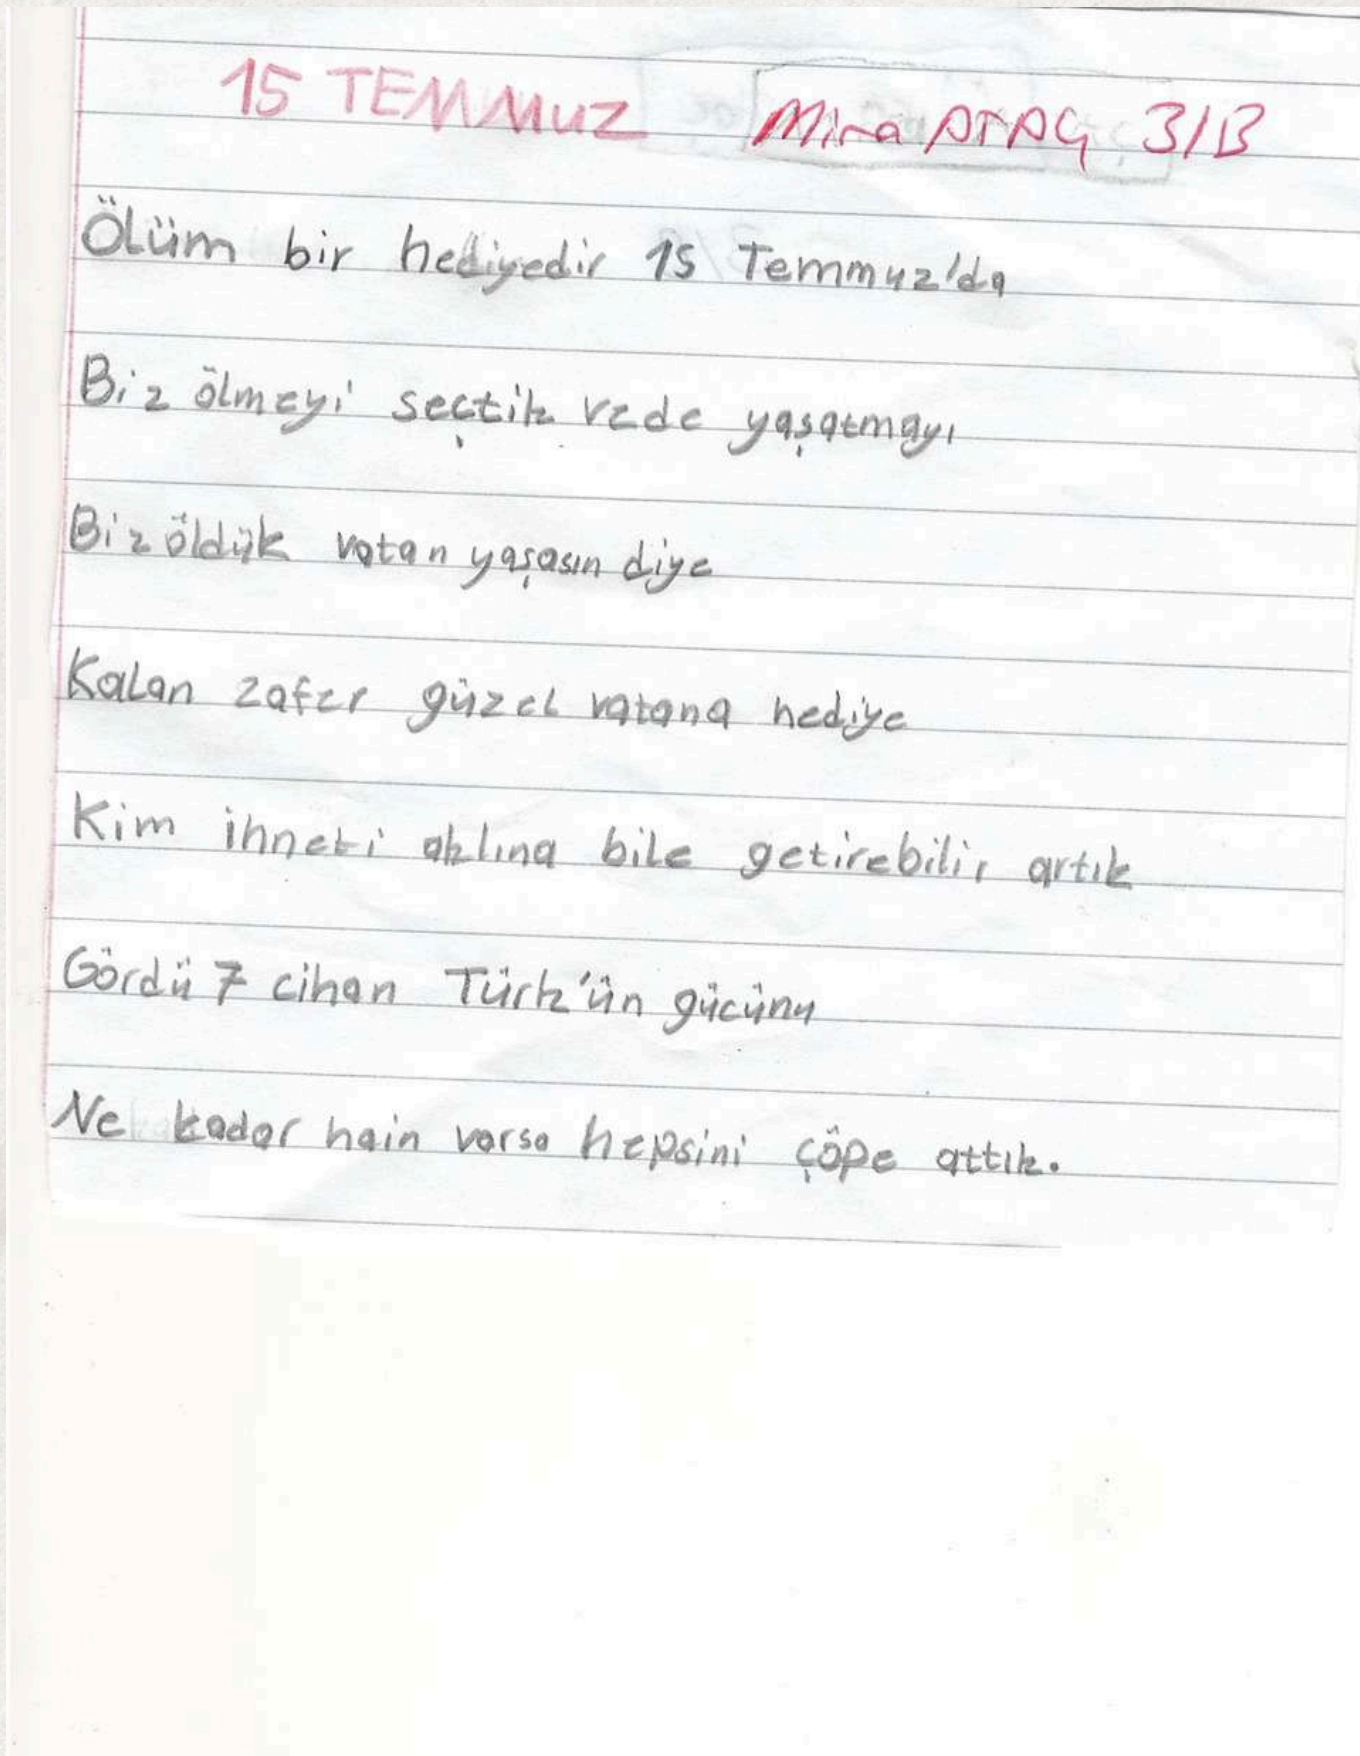 15 TEMMUZ Mira ATAÇ 3/B
Ölüm bir hediyedir 15 Temmuz'da
Biz ölmeyi seçtik vede yaşatmayı
Biz öldük vatan yaşasın diye
Kalan zafer güzel vatana hediye
Kim ihneti aklına bile getirebilir artık
Gördü 7 cihan Türk'ün gücünü
Ne kadar hain varsa hepsini çöpe attık.